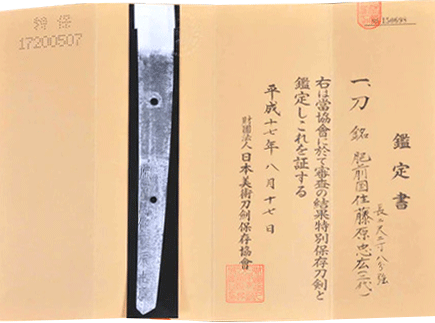 鑑定書
一、刀 銘 肥前国住藤原忠広(二代)
長二尺二寸八分強
右は當協會に於て審査の結果特別保存刀剣と
鑑定しこれを証する
平成十七年八月十七日
財團法人日本美術刀劍保存協會
特保
17200507